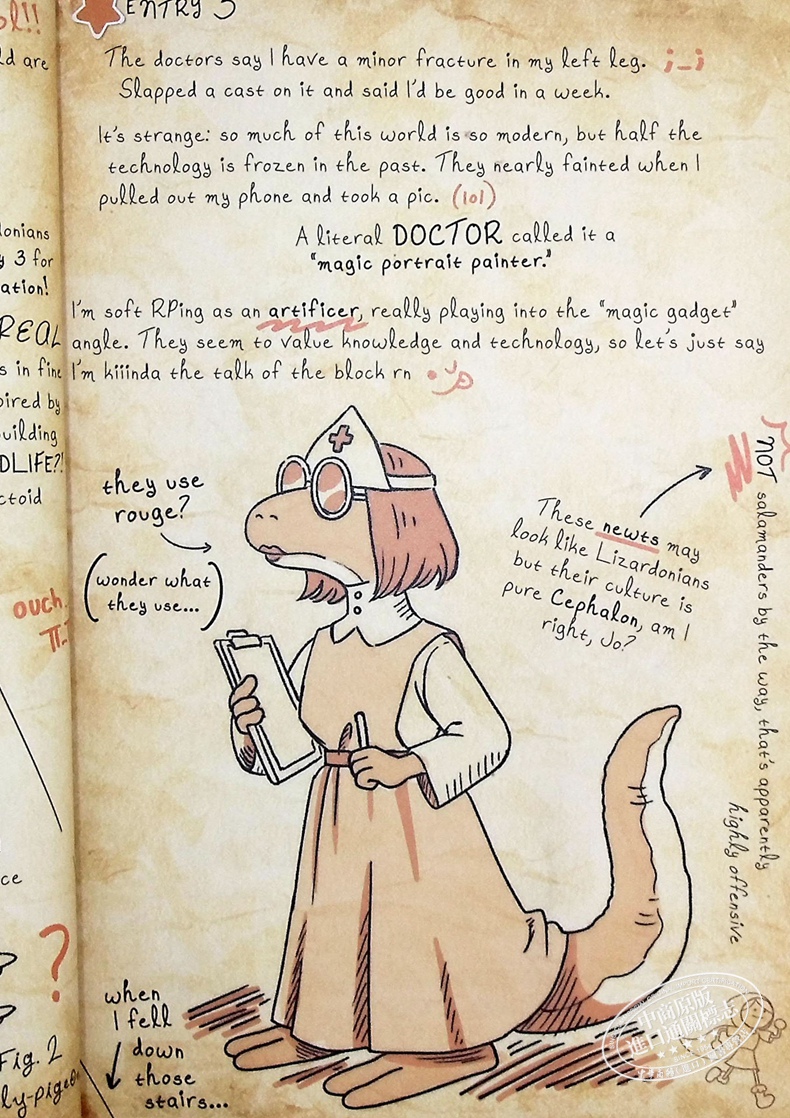 ol!!
ld are
lonians
y 3 for
ation!
REAL
s in fine
pired by
uilding
DLIFE?!
ctoid
ouch.
ce
?
Fig. 2
ly-pige
ENTRY 3
The doctors say I have a minor fracture in my left leg. ;_;
Slapped a cast on it and said I'd be good in a week.
It's strange: so much of this world is so modern, but half the
technology is frozen in the past. They nearly fainted when I
pulled out my phone and took a pic. (lol)
A literal DOCTOR called it a
"magic portrait painter."
I'm soft RPing as an artificer, really playing into the "magic gadget"
angle. They seem to value knowledge and technology, so let's just say
I'm kiiinda the talk of the block rn
they use
rouge?
(wonder what
they use...)
These newts may
look like Lizardonians
but their culture is
pure Cephalon, am I
right, Jo?
NOT salamanders by the way, that's apparently
highly offensive
when
I fell
down
those
stairs...
中商原版
進口通關標志